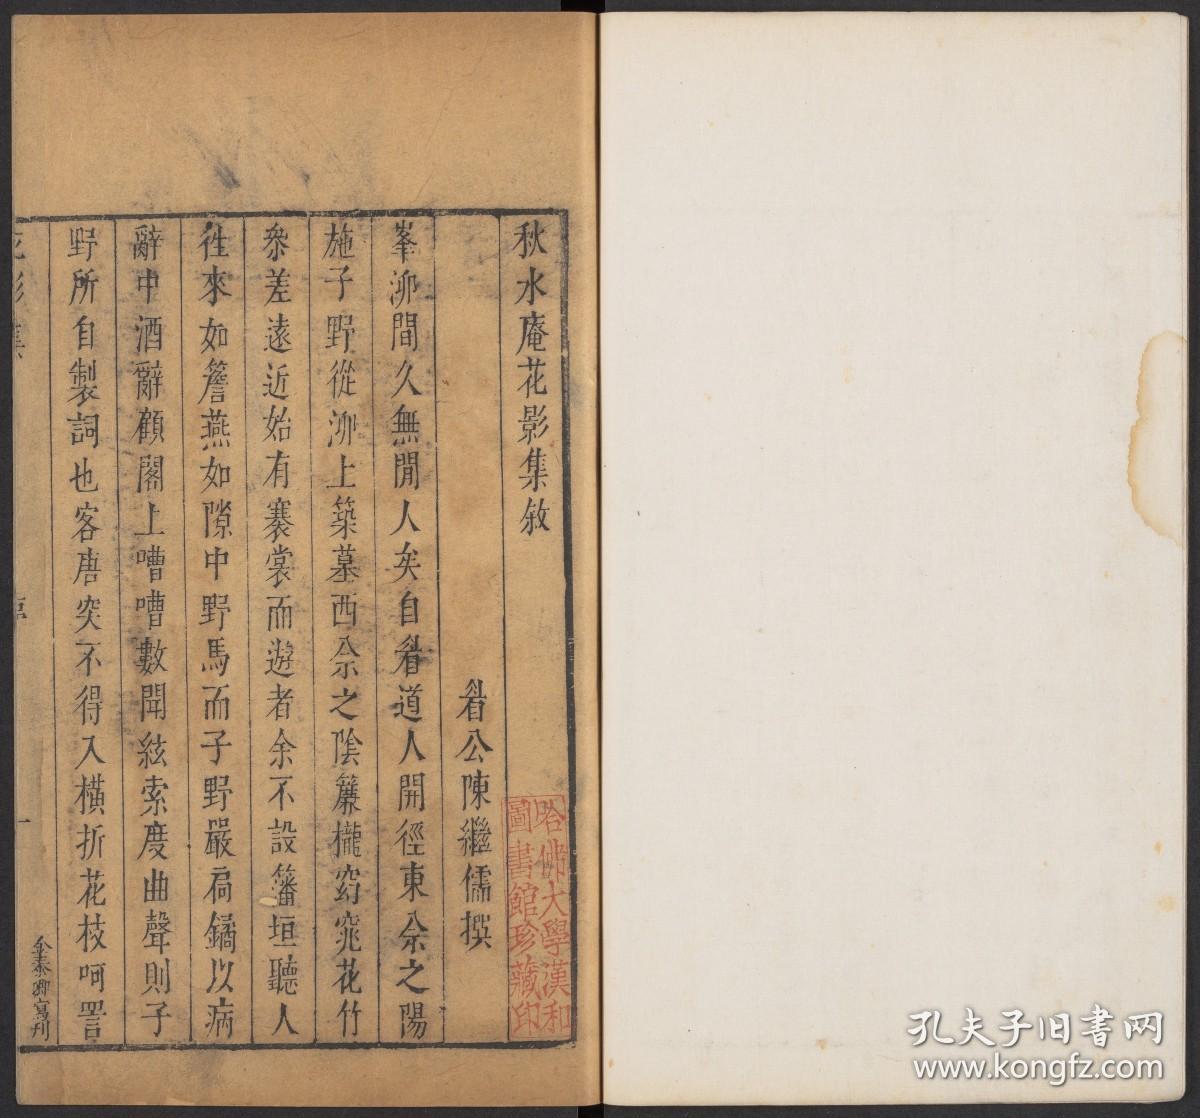 秋水庵花影集敘
眉公陳繼儒撰
峯泖間久無閒人矣自眉道人開徑東佘之陽
施子野從泖上築墓西佘之陰簾櫳窈窕花竹
叅差遠近始有褰裳而遊者余不設籓垣聽人
徃來如簷燕如隙中野馬而子野嚴扃鐍以病
辭中酒辭顧閣上嘈嘈數聞絃索度曲聲則子
野所自製詞也客唐突不得入橫折花枝呵詈
花影集
序
一
金泰卿寫刊
哈佛大學漢和
圖書館珍藏印
孔夫子旧书网
www.kongfz.com